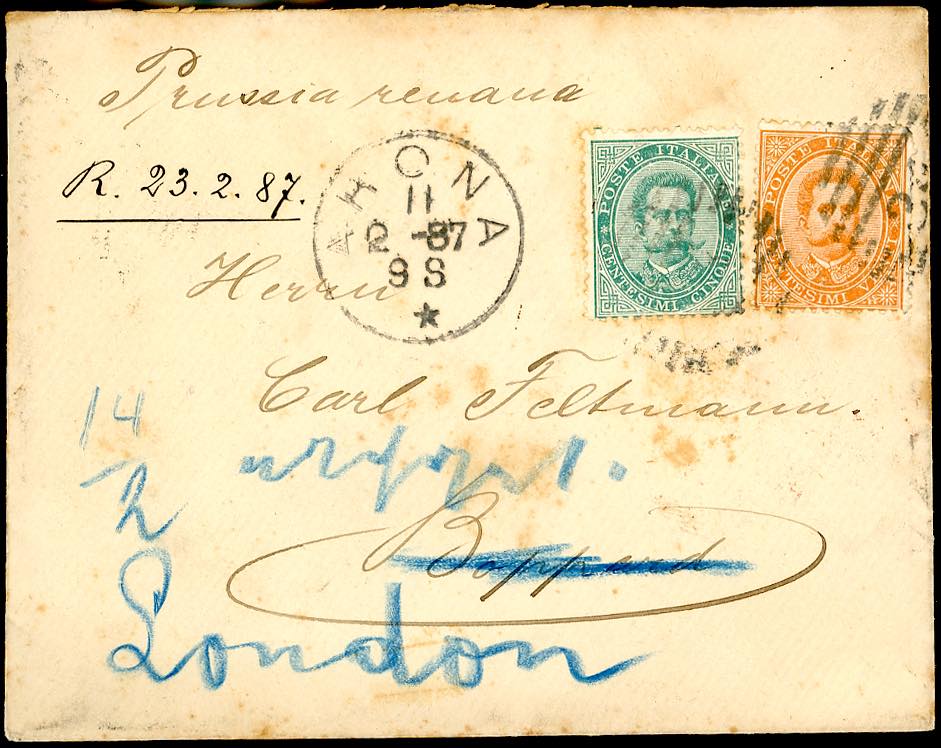 Prussia renana
R. 23.2.87.
ARONA
11
2 - 87
9 S
★
POSTE ITALIANE
CENTESIMI CINQUE
POSTE ITALIANE
CENTESIMI VENTI
Herrn
Carl Feltmann.
14
2
Boppard
London